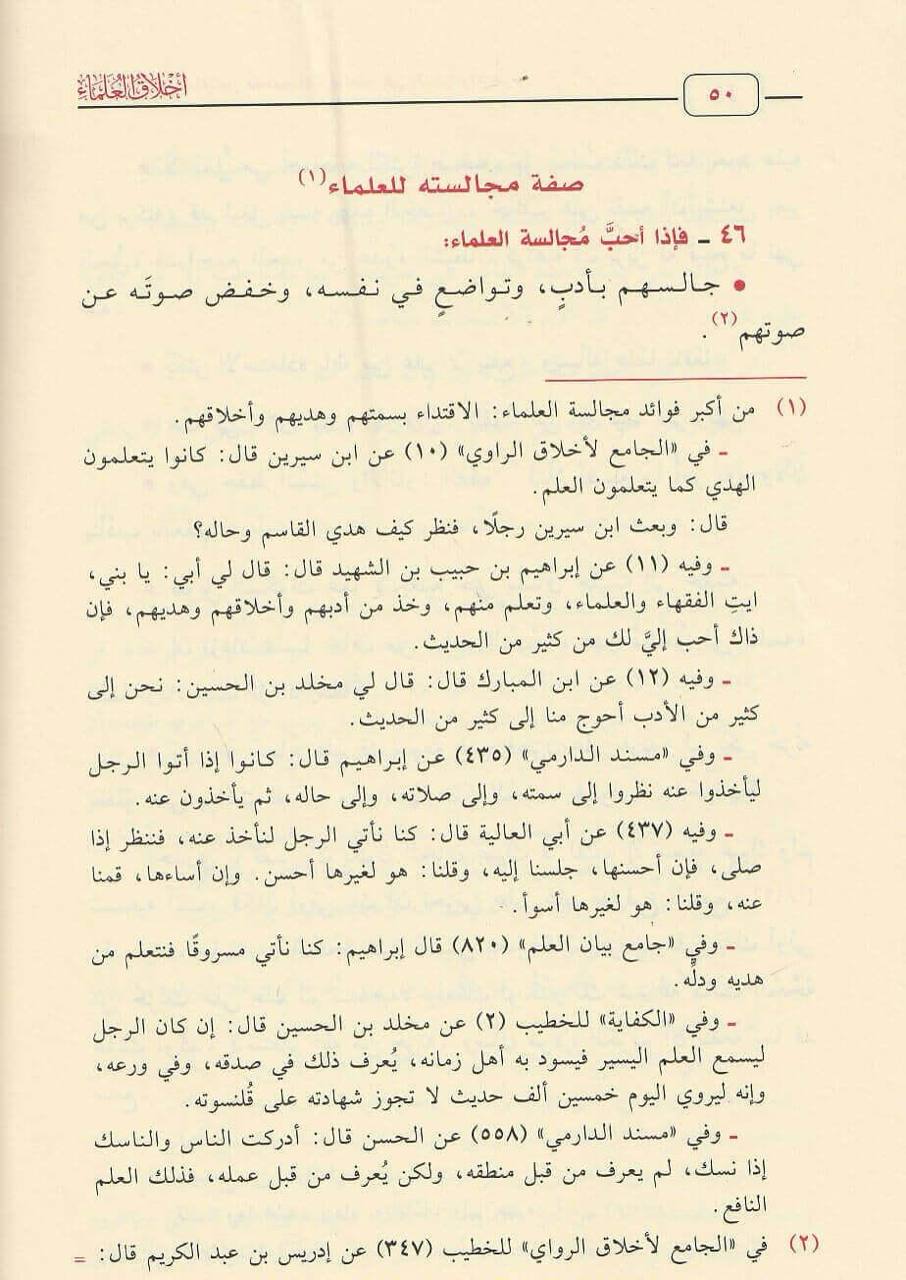 أخلاق العلماء
٥٠
صفة مجالسته للعلماء(١)
٤٦ ـ فإذا أحبَّ مُجالسة العلماء:
• جالسهم بأدبٍ، وتواضعٍ في نفسه، وخفض صوتَه عن
صوتهم(٢).
(١) من أكبر فوائد مجالسة العلماء: الاقتداء بسمتهم وهديهم وأخلاقهم.
ـ في «الجامع لأخلاق الراوي» (١٠) عن ابن سيرين قال: كانوا يتعلمون
الهدي كما يتعلمون العلم.
قال: وبعث ابن سيرين رجلًا، فنظر كيف هدي القاسم وحاله؟
ـ وفيه (١١) عن إبراهيم بن حبيب بن الشهيد قال: قال لي أبي: يا بني،
ايتِ الفقهاء والعلماء، وتعلم منهم، وخذ من أدبهم وأخلاقهم وهديهم، فإن
ذاك أحب إليَّ لك من كثير من الحديث.
ـ وفيه (١٢) عن ابن المبارك قال: قال لي مخلد بن الحسين: نحن إلى
كثير من الأدب أحوج منا إلى كثير من الحديث.
ـ وفي «مسند الدارمي» (٤٣٥) عن إبراهيم قال: كانوا إذا أتوا الرجل
ليأخذوا عنه نظروا إلى سمته، وإلى صلاته، وإلى حاله، ثم يأخذون عنه.
ـ وفيه (٤٣٧) عن أبي العالية قال: كنا نأتي الرجل لنأخذ عنه، فننظر إذا
صلى، فإن أحسنها، جلسنا إليه، وقلنا: هو لغيرها أحسن. وإن أساءها، قمنا
عنه، وقلنا: هو لغيرها أسوأ.
ـ وفي «جامع بيان العلم» (٨٢٠) قال إبراهيم: كنا نأتي مسروقًا فنتعلم من
هديه ودلِّه.
ـ وفي «الكفاية» للخطيب (٢) عن مخلد بن الحسين قال: إن كان الرجل
ليسمع العلم اليسير فيسود به أهل زمانه، يُعرف ذلك في صدقه، وفي ورعه،
وإنه ليروي اليوم خمسين ألف حديث لا تجوز شهادته على قُلنسوته.
ـ وفي «مسند الدارمي» (٥٥٨) عن الحسن قال: أدركت الناس والناسك
إذا نسك، لم يعرف من قبل منطقه، ولكن يُعرف من قبل عمله، فذلك العلم
النافع.
(٢) في «الجامع لأخلاق الرواي» للخطيب (٣٤٧) عن إدريس بن عبد الكريم قال: =